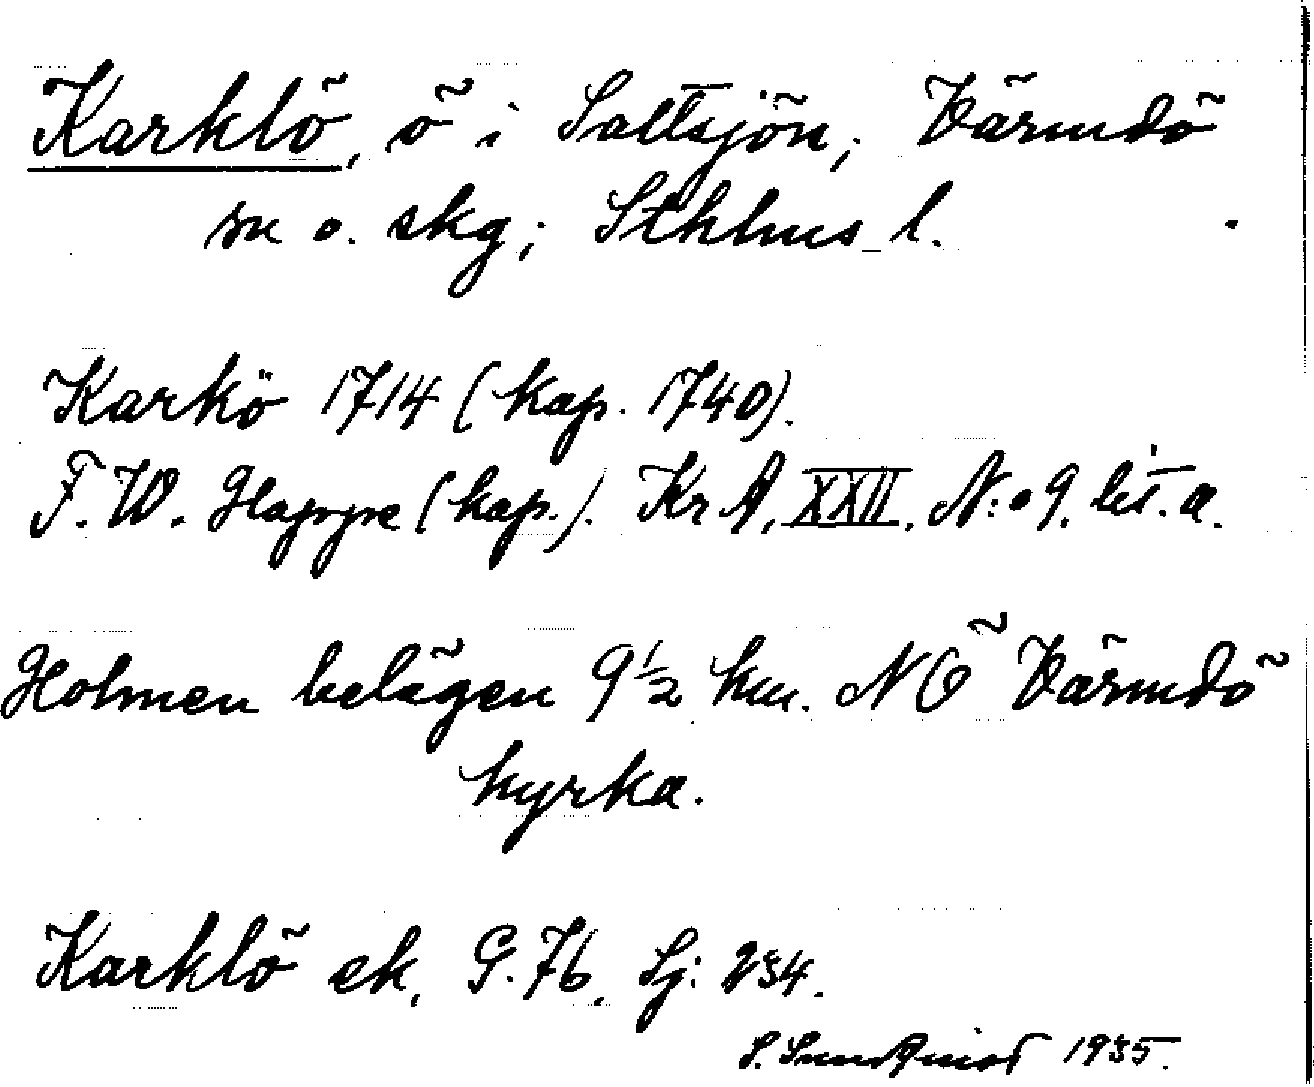 Karklö, ö i Saltsjön; Värmdö
sn o. skg; Sthlms l.
Karkö 1714 (kap. 1740).
F. W. Happe (kap.). Kr A, XXII. N:o 9. lit. a.
Holmen belägen 9 1/2 km. NÖ Värmdö
kyrka.
Karklö ek. G. 76. Sj: 234.
S. Sundquist 1935.